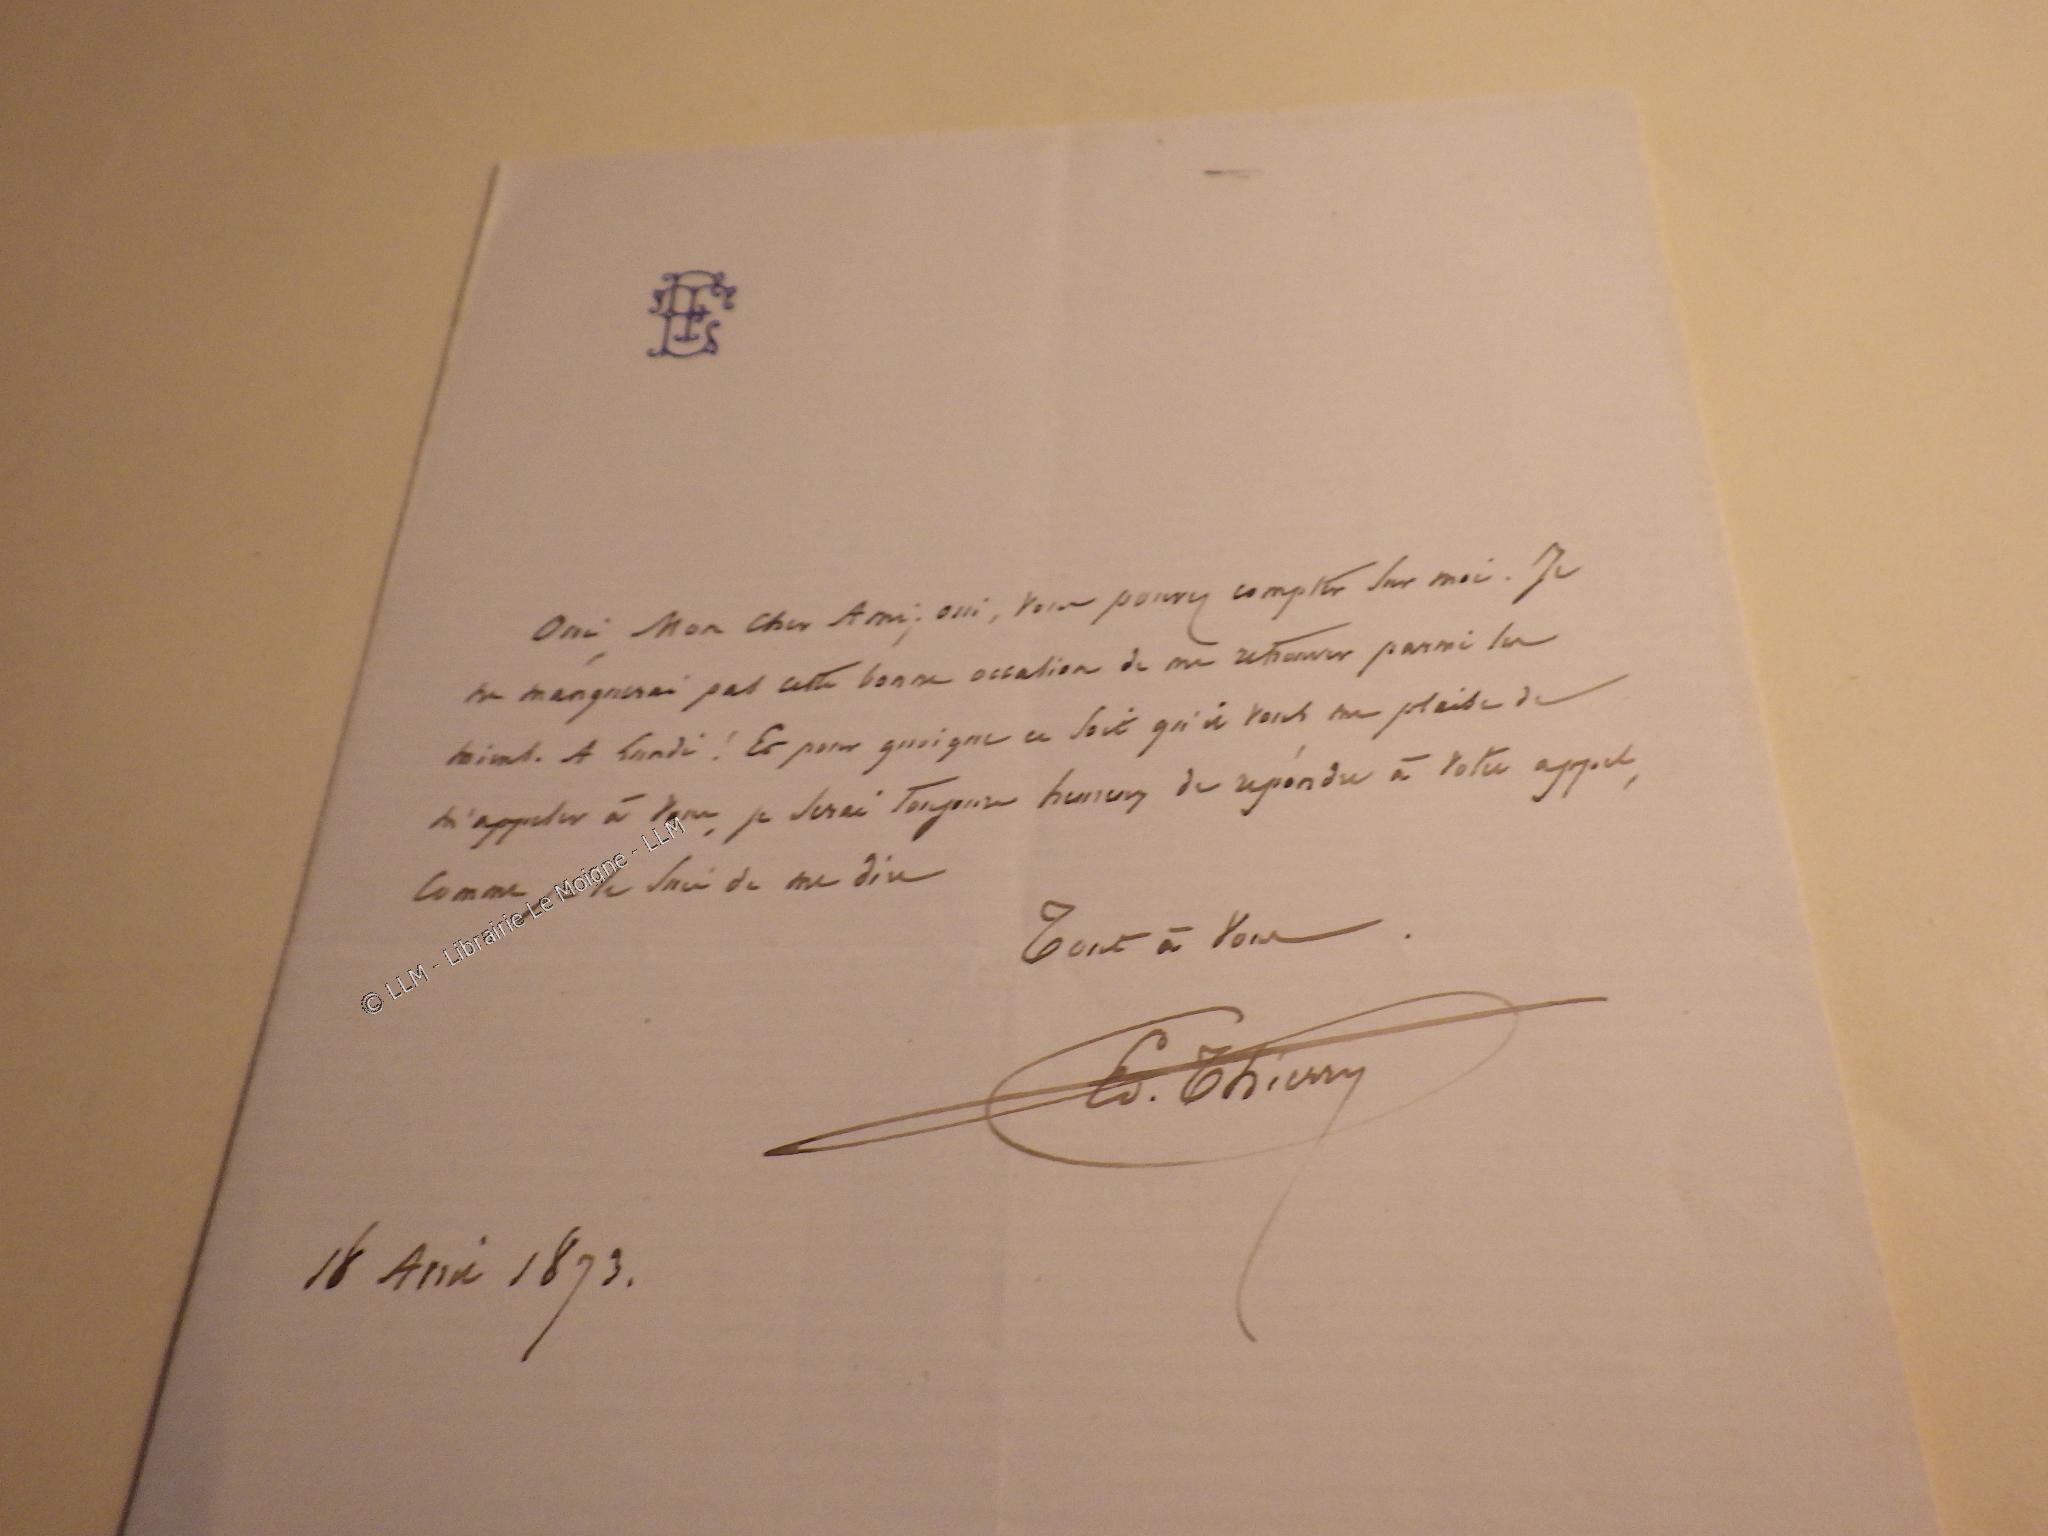 ET
Oui, Mon Cher Ami; oui, vous pouvez compter sur moi. Je
ne manquerai pas cette bonne occasion de me retrouver parmi les
miens. A lundi! Et pour quoique ce soit qu'il vous me plaise de
m'appeler à vous, je serai toujours heureux de répondre à votre appel,
Comme je le suis de me dire
Tout à vous.
Ed. Thierry
18 Avril 1873.
© LLM - Librairie Le Moigne - LLM